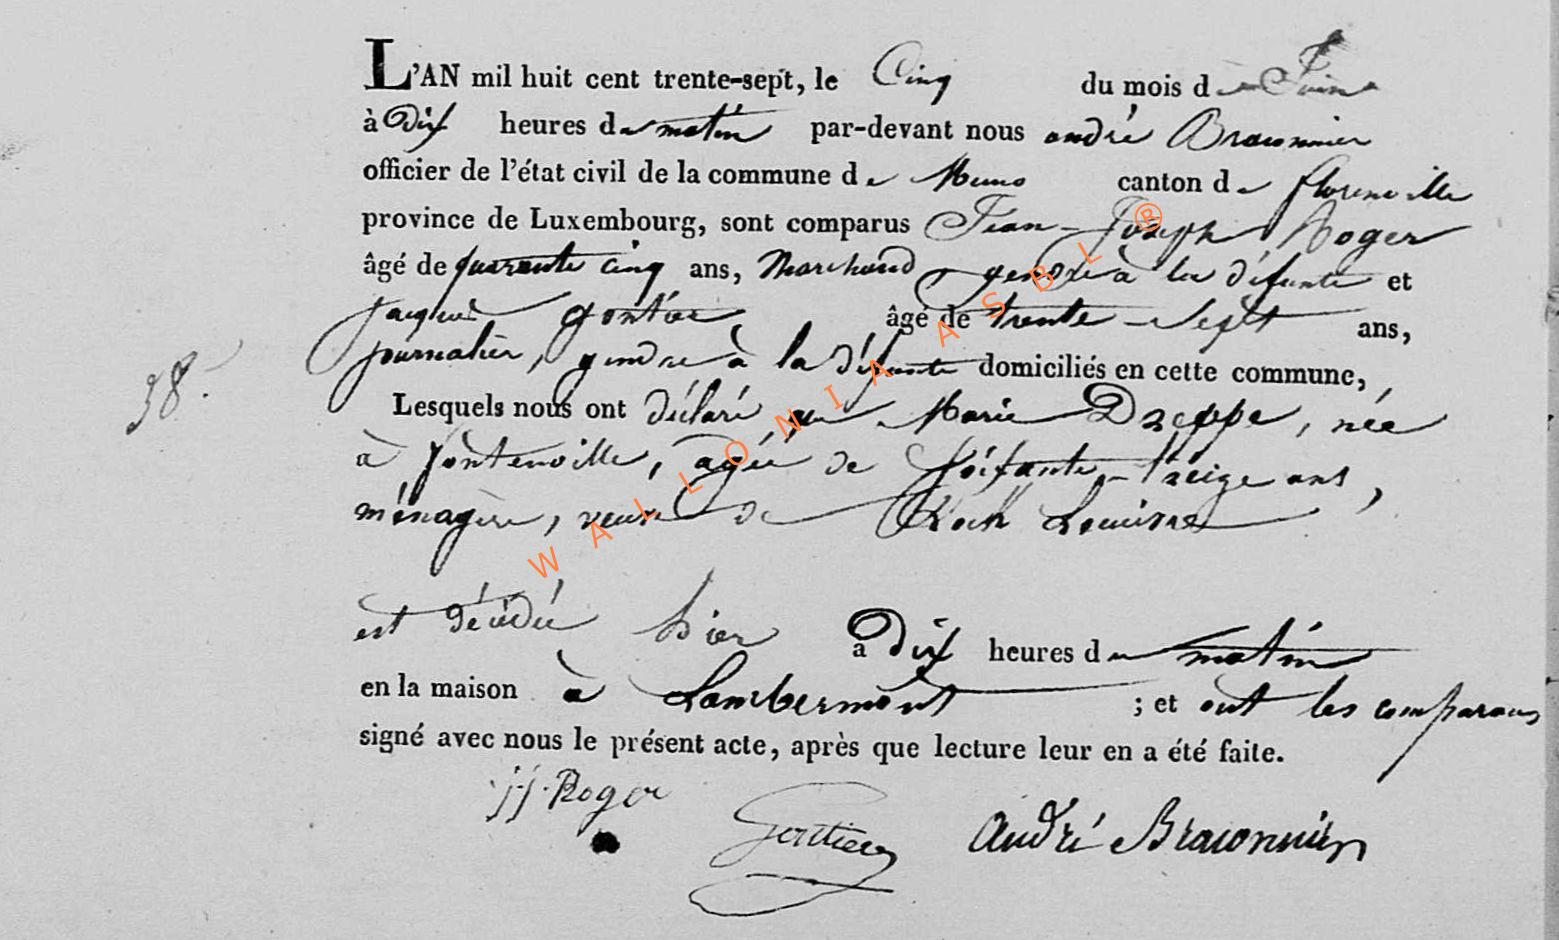 L'AN mil huit cent trente-sept, le Cinq du mois de Juin
à Dix heures du matin par-devant nous andré Braconnier
officier de l'état civil de la commune de Muno canton de florenville
province de Luxembourg, sont comparus Jean-Joseph Roger
âgé de quarante cinq ans, Marchand, gendre à la défunte et
jacques gontier âgé de trente-sept ans,
journalier, gendre à la défunte domiciliés en cette commune,
38.
Lesquels nous ont déclaré que Marie Dreppe, née
à fontenoille, agée de soixante-treize ans,
ménagère, veuve de Roch
est décédée hier à Dix heures du matin
en la maison à Lambermont ; et ont les comparans
signé avec nous le présent acte, après que lecture leur en a été faite.
jj. Roger
Gontier
André Braconnier
WALLONIA ASBL ®